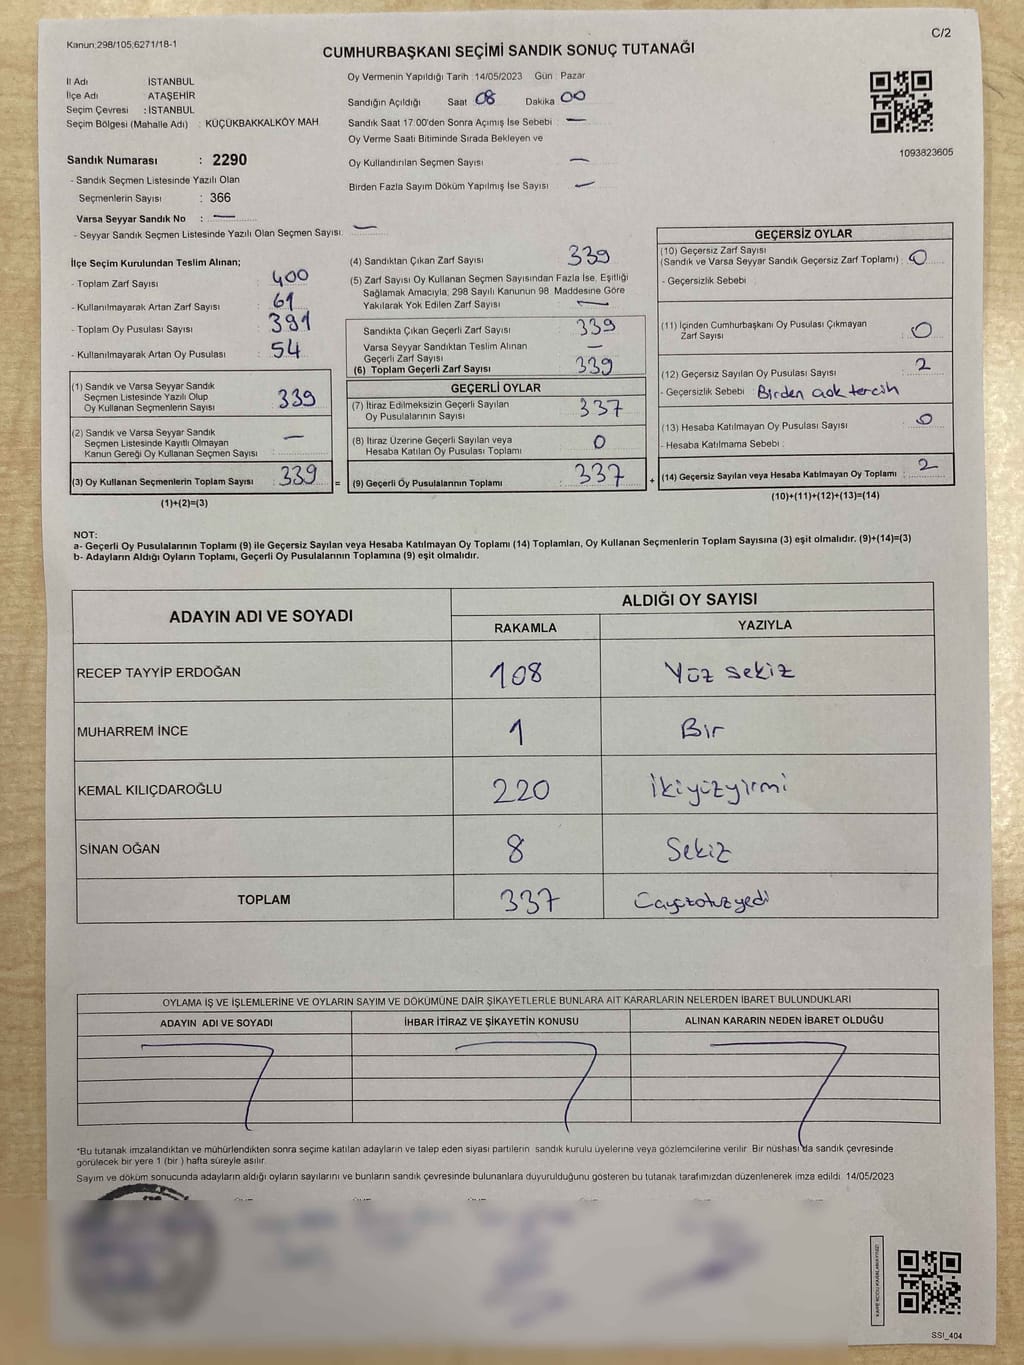 Kanun:298/105;6271/18-1
C/2
CUMHURBAŞKANI SEÇİMİ SANDIK SONUÇ TUTANAĞI
İl Adı İSTANBUL
İlçe Adı ATAŞEHİR
Seçim Çevresi : İSTANBUL
Seçim Bölgesi (Mahalle Adı) : KÜÇÜKBAKKALKÖY MAH.
Sandık Numarası : 2290
- Sandık Seçmen Listesinde Yazılı Olan
Seçmenlerin Sayısı : 366
Varsa Seyyar Sandık No : —
- Seyyar Sandık Seçmen Listesinde Yazılı Olan Seçmen Sayısı: —
Oy Vermenin Yapıldığı Tarih : 14/05/2023 Gün : Pazar
Sandığın Açıldığı Saat 08 Dakika 00
Sandık Saat 17:00'den Sonra Açımış İse Sebebi : —
Oy Verme Saati Bitiminde Sırada Bekleyen ve
Oy Kullandırılan Seçmen Sayısı —
Birden Fazla Sayım Döküm Yapılmış İse Sayısı —
1093823605
İlçe Seçim Kurulundan Teslim Alınan;
- Toplam Zarf Sayısı : 400
- Kullanılmayarak Artan Zarf Sayısı : 61
- Toplam Oy Pusulası Sayısı : 391
- Kullanılmayarak Artan Oy Pusulası : 54
(1) Sandık ve Varsa Seyyar Sandık
Seçmen Listesinde Yazılı Olup
Oy Kullanan Seçmenlerin Sayısı : 339
(2) Sandık ve Varsa Seyyar Sandık
Seçmen Listesinde Kayıtlı Olmayan
Kanun Gereği Oy Kullanan Seçmen Sayısı : —
(3) Oy Kullanan Seçmenlerin Toplam Sayısı : 339 =
(1)+(2)=(3)
(4) Sandıktan Çıkan Zarf Sayısı : 339
(5) Zarf Sayısı Oy Kullanan Seçmen Sayısından Fazla İse, Eşitliği
Sağlamak Amacıyla, 298 Sayılı Kanunun 98. Maddesine Göre
Yakılarak Yok Edilen Zarf Sayısı : —
Sandıkta Çıkan Geçerli Zarf Sayısı : 339
Varsa Seyyar Sandıktan Teslim Alınan
Geçerli Zarf Sayısı : —
(6) Toplam Geçerli Zarf Sayısı : 339
GEÇERLİ OYLAR
(7) İtiraz Edilmeksizin Geçerli Sayılan
Oy Pusulalarının Sayısı : 337
(8) İtiraz Üzerine Geçerli Sayılan veya
Hesaba Katılan Oy Pusulası Toplamı : 0
(9) Geçerli Oy Pusulalarının Toplamı : 337 +
GEÇERSİZ OYLAR
(10) Geçersiz Zarf Sayısı
(Sandık ve Varsa Seyyar Sandık Geçersiz Zarf Toplamı) : 0
- Geçersizlik Sebebi :
(11) İçinden Cumhurbaşkanı Oy Pusulası Çıkmayan
Zarf Sayısı : 0
(12) Geçersiz Sayılan Oy Pusulası Sayısı : 2
- Geçersizlik Sebebi : Birden çok tercih
(13) Hesaba Katılmayan Oy Pusulası Sayısı : 0
- Hesaba Katılmama Sebebi :
(14) Geçersiz Sayılan veya Hesaba Katılmayan Oy Toplamı : 2
(10)+(11)+(12)+(13)=(14)
NOT:
a- Geçerli Oy Pusulalarının Toplamı (9) ile Geçersiz Sayılan veya Hesaba Katılmayan Oy Toplamı (14) Toplamları, Oy Kullanan Seçmenlerin Toplam Sayısına (3) eşit olmalıdır. (9)+(14)=(3)
b- Adayların Aldığı Oyların Toplamı, Geçerli Oy Pusulalarının Toplamına (9) eşit olmalıdır.
ADAYIN ADI VE SOYADI
ALDIĞI OY SAYISI
RAKAMLA YAZIYLA
RECEP TAYYİP ERDOĞAN 108 Yüz sekiz
MUHARREM İNCE 1 Bir
KEMAL KILIÇDAROĞLU 220 İkiyüzyirmi
SİNAN OĞAN 8 Sekiz
TOPLAM 337
OYLAMA İŞ VE İŞLEMLERİNE VE OYLARIN SAYIM VE DÖKÜMÜNE DAİR ŞİKAYETLERLE BUNLARA AİT KARARLARIN NELERDEN İBARET BULUNDUKLARI
ADAYIN ADI VE SOYADI İHBAR İTİRAZ VE ŞİKAYETİN KONUSU ALINAN KARARIN NEDEN İBARET OLDUĞU
*Bu tutanak imzalandıktan ve mühürlendikten sonra seçime katılan adayların ve talep eden siyasi partilerin sandık kurulu üyelerine veya gözlemcilerine verilir. Bir nüshası da sandık çevresinde
görülecek bir yere 1 (bir ) hafta süreyle asılır.
Sayım ve döküm sonucunda adayların aldığı oyların sayılarını ve bunların sandık çevresinde bulunanlara duyurulduğunu gösteren bu tutanak tarafımızdan düzenlenerek imza edildi. 14/05/2023
SSİ_404